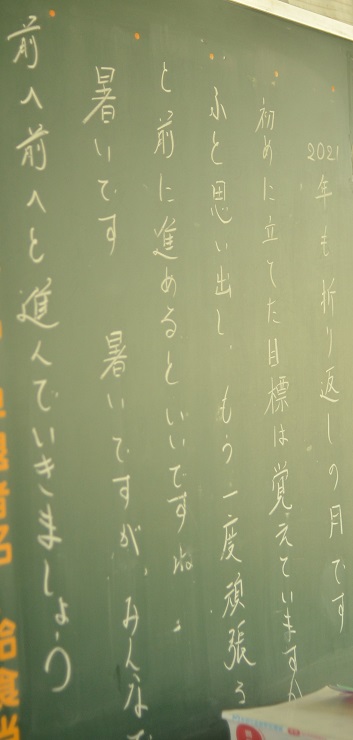 2021年も折り返しの月です
初めに立てた目標は覚えていますか
ふと思い出し、もう一度頑張る
と前に進めるといいです
暑いです 暑いですが、みんなで
前へ前へと進んでいきましょう